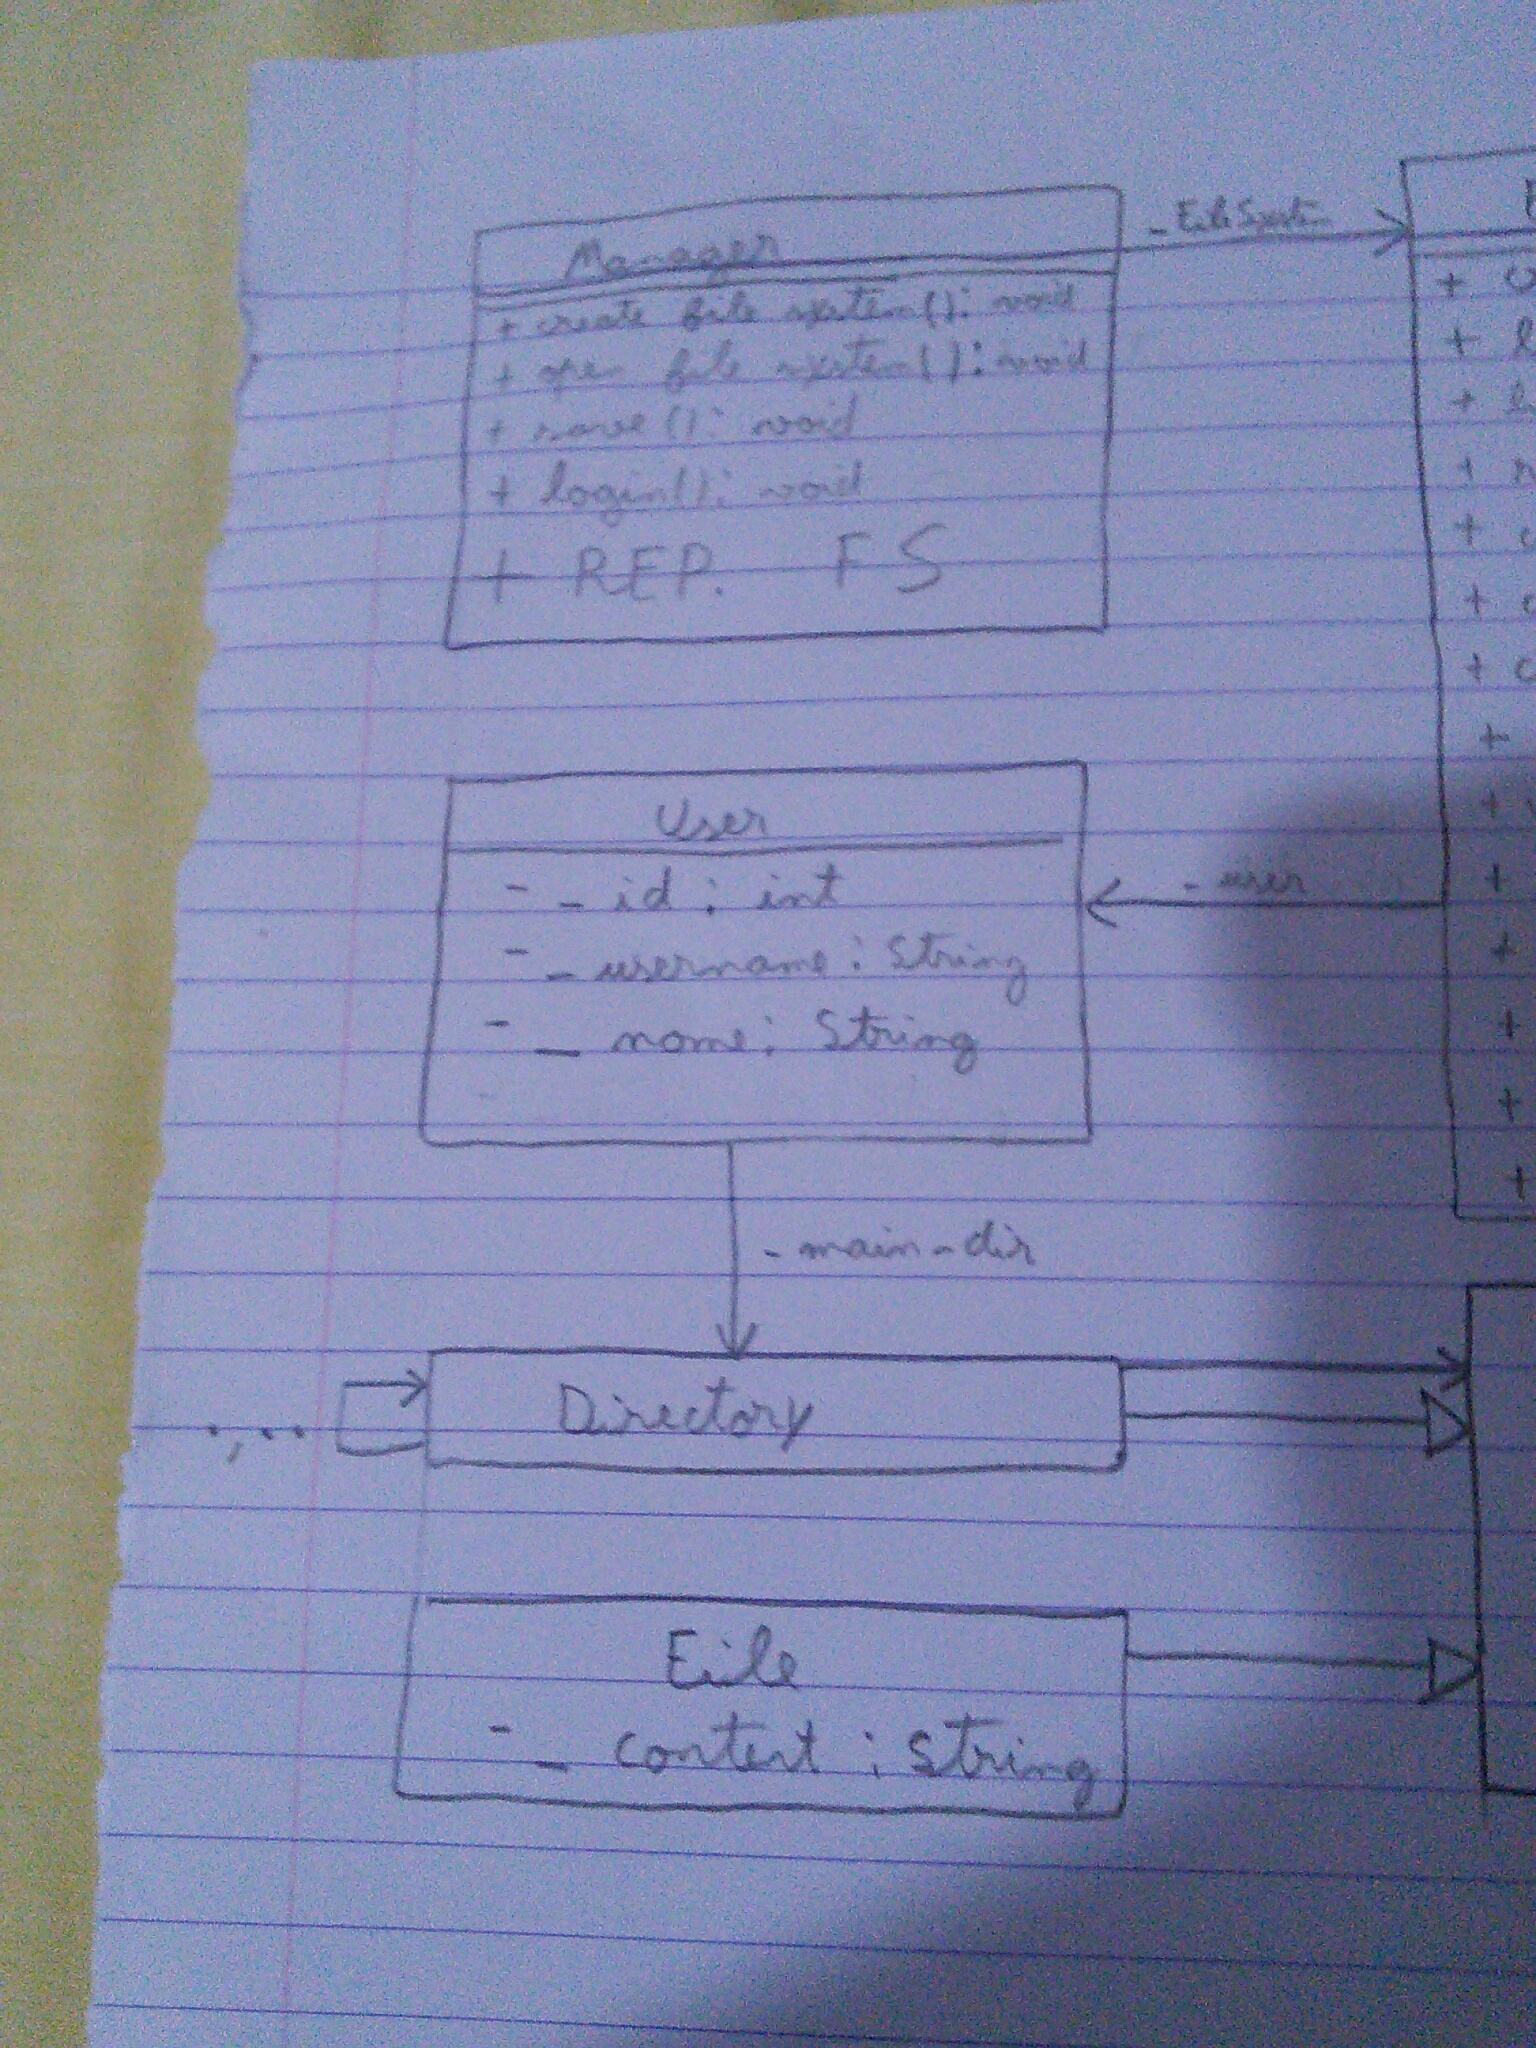 Manager
- FileSystem
+ create file system(): void
+ open file system(): void
+ save(): void
+ login(): void
+ REP. FS
User
- _ id : int
- _ username : String
- _ nome : String
- user
- main-dir
Directory
., ..
File
- _ content : String
+
+
+
+
+
+
+
+
+
+
+
+
+
+